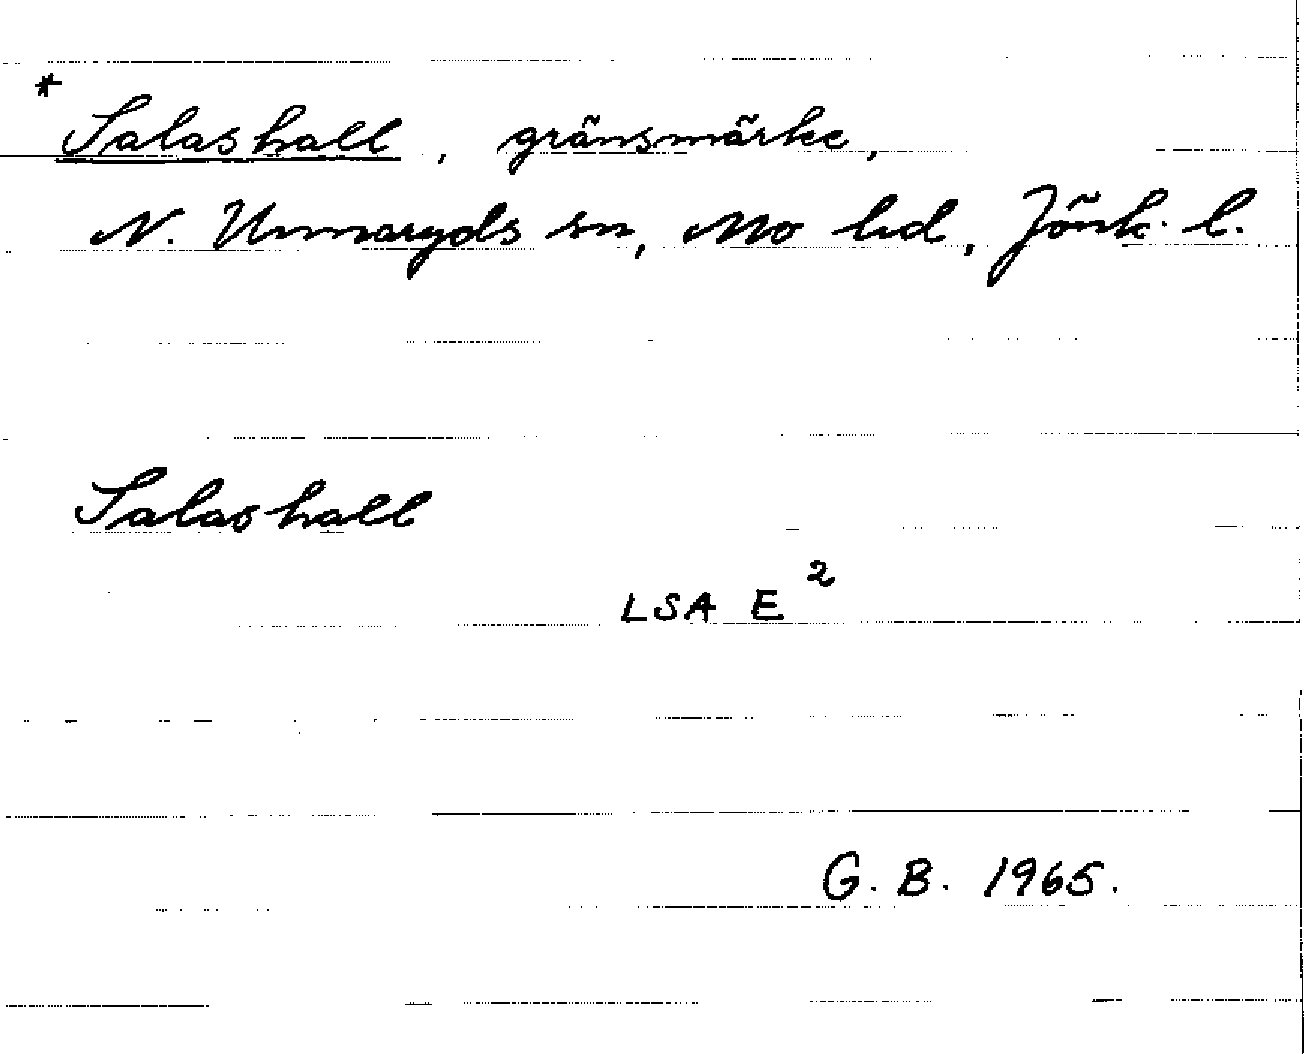 * Salashall, gränsmärke,
N. Unnaryds sn, Mo hd, Jönk. l.
Salashall
LSA E²
G. B. 1965.